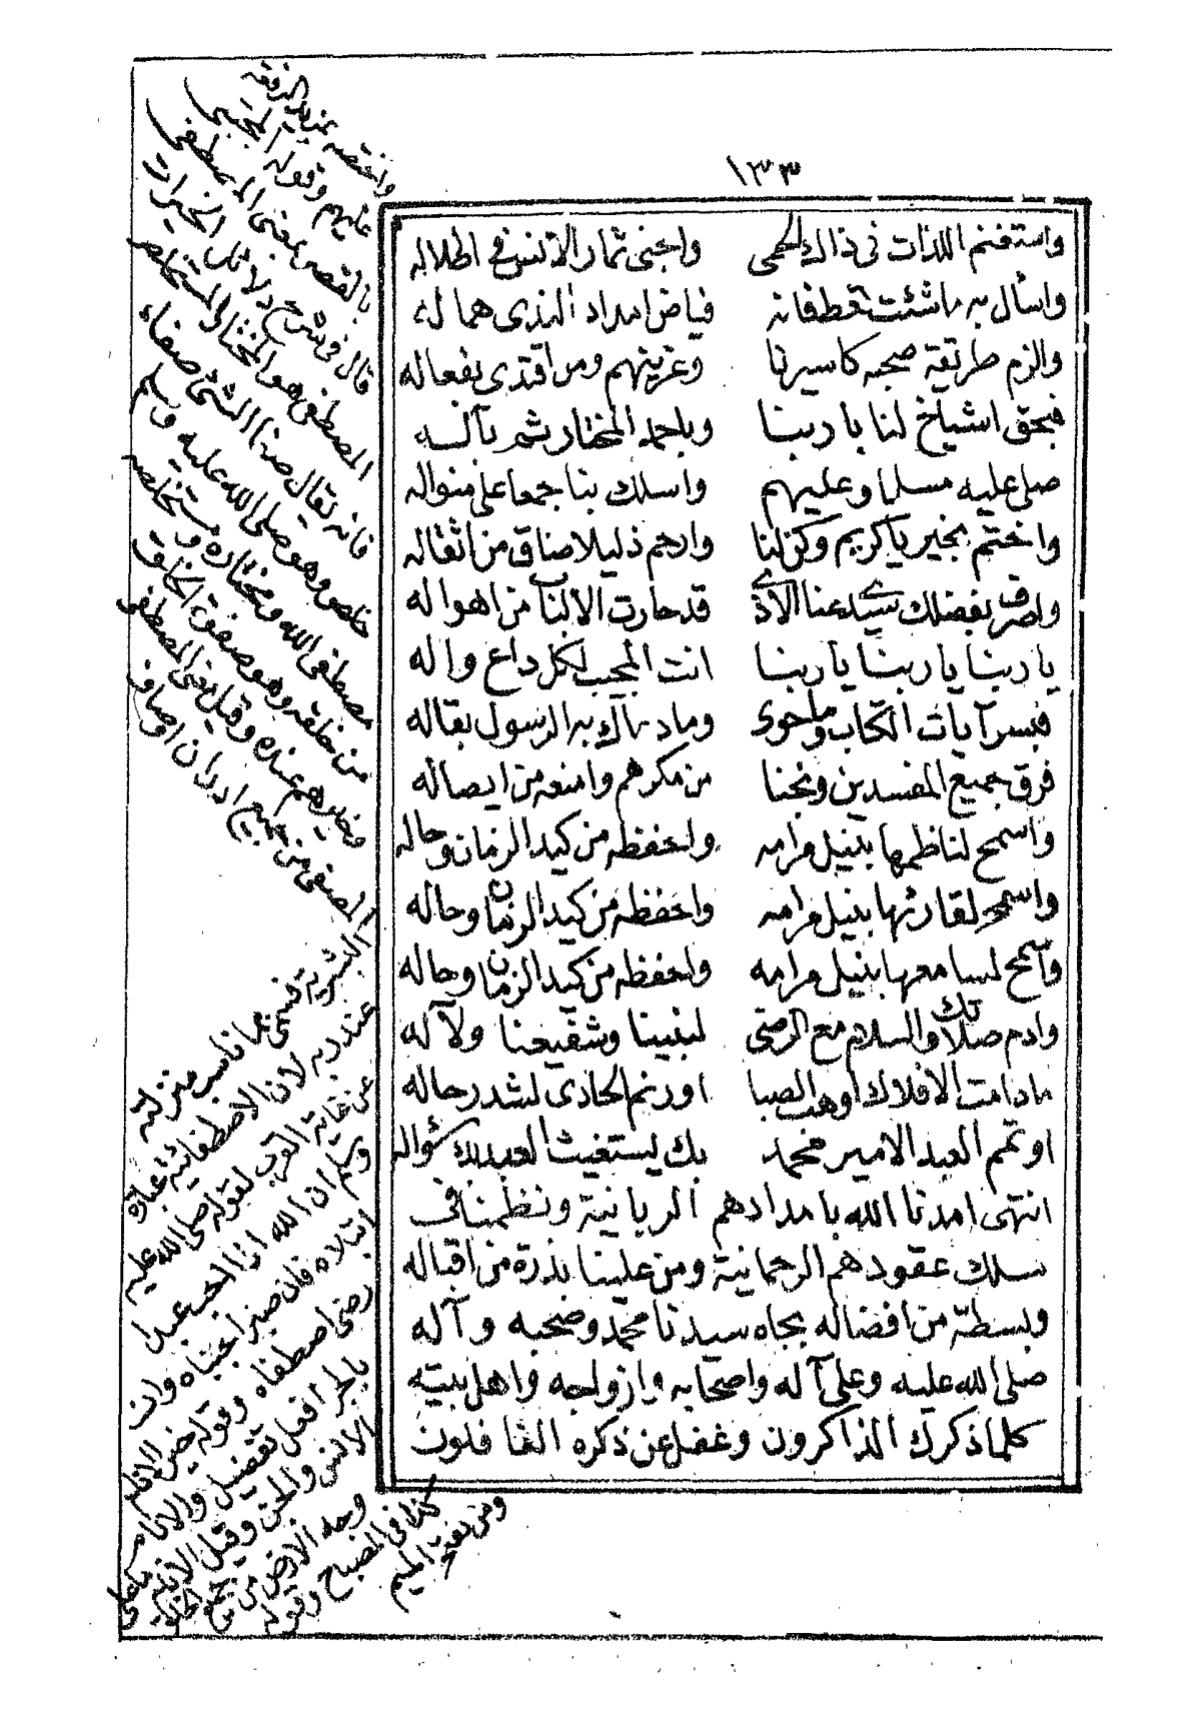 ١٣٣
واستغنم اللذات فى ذاك الحمى واجنى ثمار الانس فى اطلاله
واسأل به ماشئت تعطى فانه فياض امداد الذى هماله
والزم طريقة صحبه كاسيرنا وعزيتهم ومن اقتدى بفعاله
فبحق اشياخ لنا يا ربنا وباحمد المختار ثم بآله
صلى عليه مسلما وعليهم واسلك بنا جمعا على منواله
واختم بخير يا كريم وكن لنا وارحم ذليلا ضاق من اثقاله
واصرف بفضلك سيدى عنا الاذى قد حارت الالباب من اهواله
يا ربنا يا ربنا يا ربنا انت المجيب لكل داع واله
فبسر آيات الكتاب وما حوى وما دعاك به الرسول بقاله
فرق جميع المفسدين ونجنا من مكرهم وامنعه من ايصاله
واسمح لناظمها بنيل مرامه واحفظه من كيد الزمان وحاله
واسمح لقارئها بنيل مرامه واحفظه من كيد الزمان وحاله
واسمح لسامعها بنيل مرامه واحفظه من كيد الزمان وحاله
وادم صلاتك والسلام مع الرضى لنبينا وشفيعنا ولآله
مادامت الافلاك اوهب الصبا اورنم الحادى لشد رحاله
او تمم العبد الامير محمد بك ليستغيث العبد لك سؤاله
انتهى امدنا الله بامدادهم الربانية ونظمنا فى
سلك عقودهم الرحمانية ومن علينا بذرة من اقباله
وبسطة من افضاله بجاه سيدنا محمد وصحبه وآله
صلى الله عليه وعلى آله واصحابه وازواجه واهل بيته
كلما ذكرك الذاكرون وغفل عن ذكره الغافلون
واختصه بمزيد الرفقه
عليهم وقوله المجتبى
بالقصر بمعنى المصطفى
قال فى شرح دلائل الخيرات
المصطفى هو المختار المستخلص
فانه يقال صفا الشئ صفاء
خلص وهو صلى الله عليه وسلم
مصطفى الله ومختاره ومستخلصه
من خلقه وهو صفوة الخلق
وخيرهم عنده وقيل يعنى المصطفى
المصفى من جميع ادران اوصاف
البشرية فسمى بما ناسب منزلته
عند ربه لان الاصطفائية عبارة
عن غاية القرب لقوله صلى الله عليه
وسلم ان الله اذا احب عبدا
ابتلاه فان صبر اجتباه وان
رضى اصطفاه وقوله خير الانام
بالجر افعل تفضيل والانام
الانس والجن وقيل الانام ما على
وجه الارض من جميع الخلق
كذا فى المصباح وقوله
ومن بفتح الميم